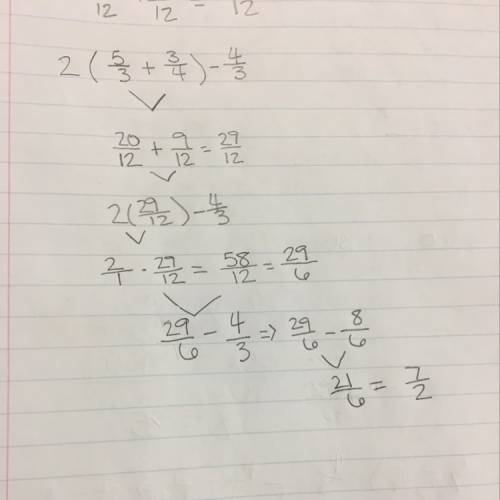 12 12 = 12
2 ( 5/3 + 3/4 ) - 4/3
20/12 + 9/12 = 29/12
2 ( 29/12 ) - 4/3
2/1 · 29/12 = 58/12 = 29/6
29/6 - 4/3 => 29/6 - 8/6
21/6 = 7/2